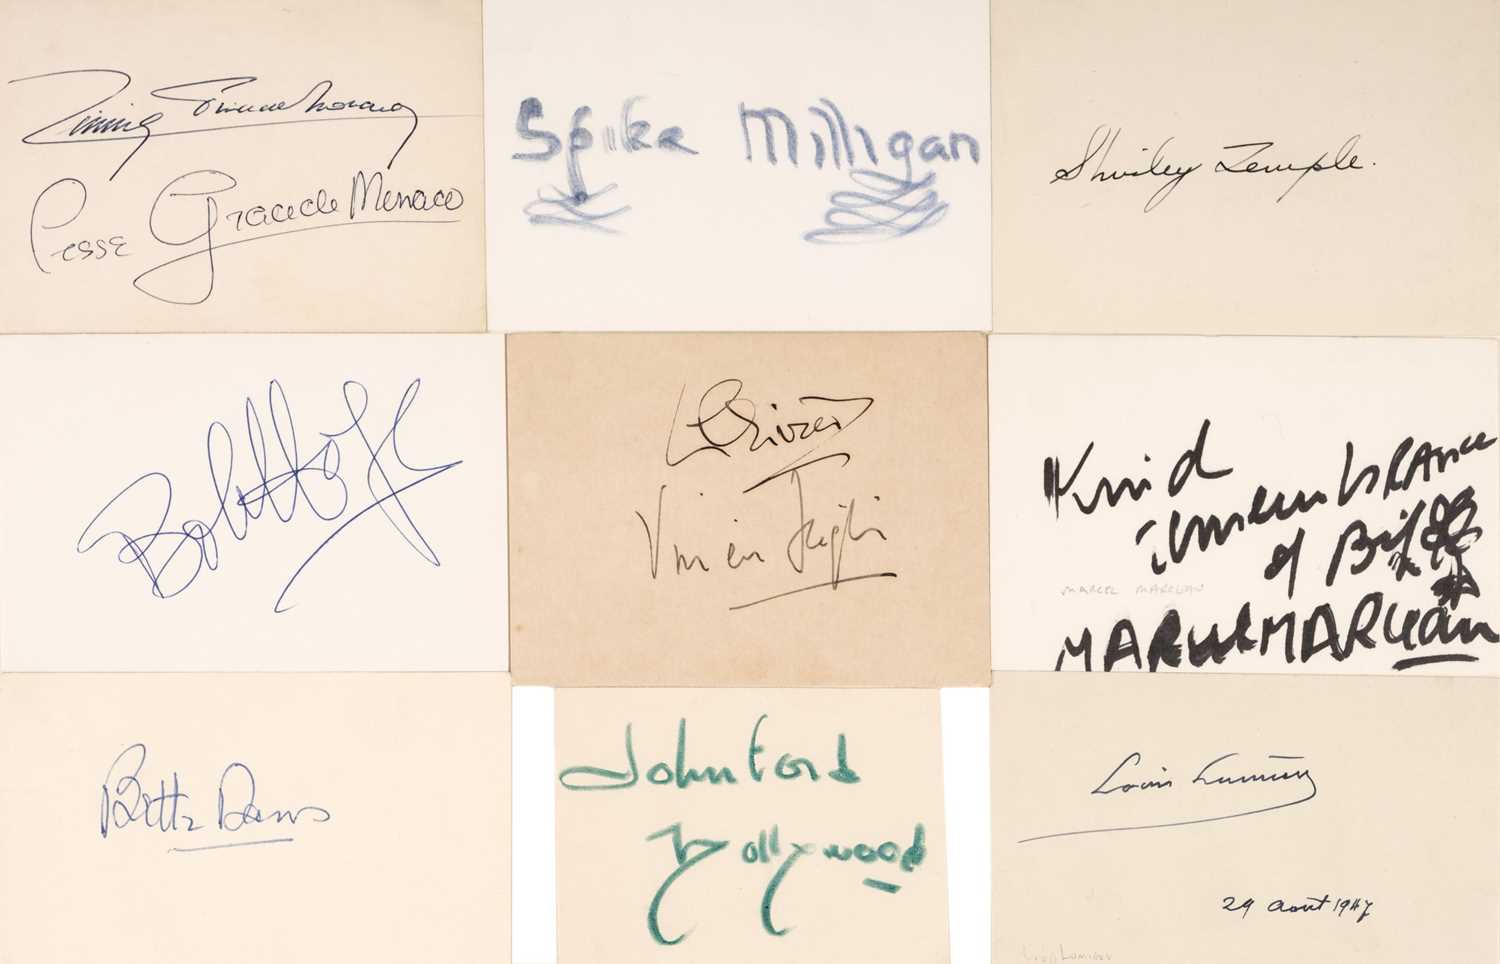 Rainier Prince de Monaco
Pcesse Grace de Monaco
Spike Milligan
Shirley Temple.
Bob Hope
L Olivier
Vivien Leigh
Kind
remembrance
of Bip
MARCEL MARCEAU
MARCEL MARCEAU
Bette Davis
John Ford
Hollywood
Louis Lumière
29 Août 1947
Louis Lumière